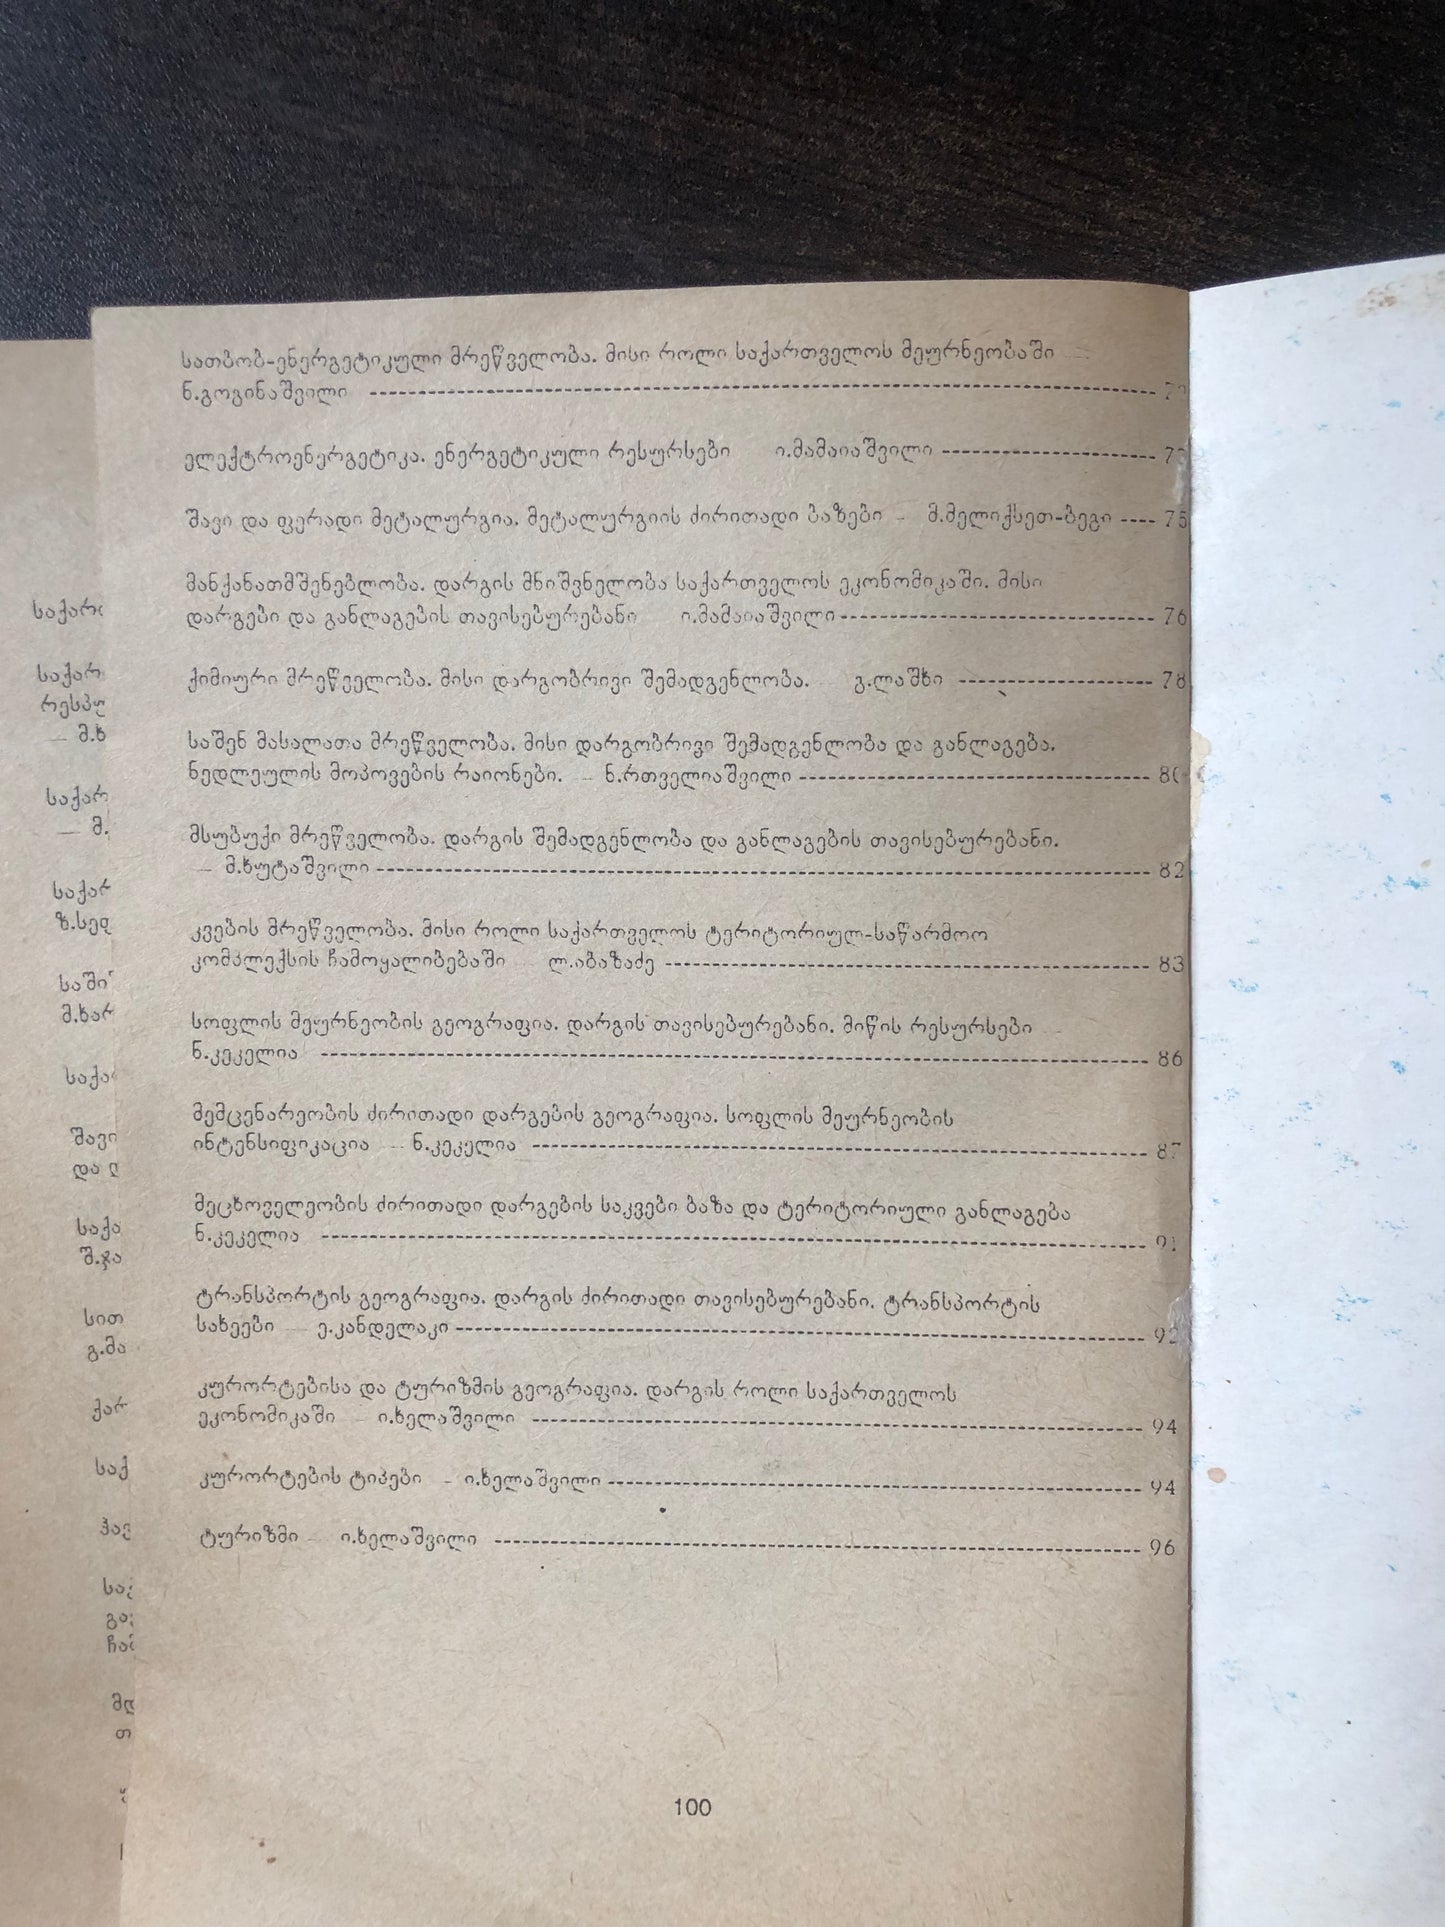 სათბობ-ენერგეტიკული მრეწველობა. მისი როლი საქართველოს მეურნეობაში
ნ.გოგინაშვილი ---
ელექტროენერგეტიკა. ენერგეტიკული რესურსები ი.მამაიაშვილი ---
შავი და ფერადი მეტალურგია. მეტალურგიის ძირითადი ბაზები - მ.მელიქსეთ-ბეგი ---- 75
მანქანათმშენებლობა. დარგის მნიშვნელობა საქართველოს ეკონომიკაში. მისი
დარგები და განლაგების თავისებურებანი ი.მამაიაშვილი --- 76
ქიმიური მრეწველობა. მისი დარგობრივი შემადგენლობა. გ.ლაშხი --- 78
საშენ მასალათა მრეწველობა. მისი დარგობრივი შემადგენლობა და განლაგება.
ნედლეულის მოპოვების რაიონები. - ნ.რთველიაშვილი --- 80
მსუბუქი მრეწველობა. დარგის შემადგენლობა და განლაგების თავისებურებანი.
- მ.ხუტაშვილი --- 82
კვების მრეწველობა. მისი როლი საქართველოს ტერიტორიულ-საწარმოო
კომპლექსის ჩამოყალიბებაში ლ.აბაზაძე --- 83
სოფლის მეურნეობის გეოგრაფია. დარგის თავისებურებანი. მიწის რესურსები
ნ.კეკელია --- 86
მემცენარეობის ძირითადი დარგების გეოგრაფია. სოფლის მეურნეობის
ინტენსიფიკაცია - ნ.კეკელია --- 87
მეცხოველეობის ძირითადი დარგების საკვები ბაზა და ტერიტორიული განლაგება
ნ.კეკელია --- 91
ტრანსპორტის გეოგრაფია. დარგის ძირითადი თავისებურებანი. ტრანსპორტის
სახეები - ე.კანდელაკი --- 92
კურორტებისა და ტურიზმის გეოგრაფია. დარგის როლი საქართველოს
ეკონომიკაში - ი.ხელაშვილი --- 94
კურორტების ტიპები - ი.ხელაშვილი --- 94
ტურიზმი - ი.ხელაშვილი --- 96
100